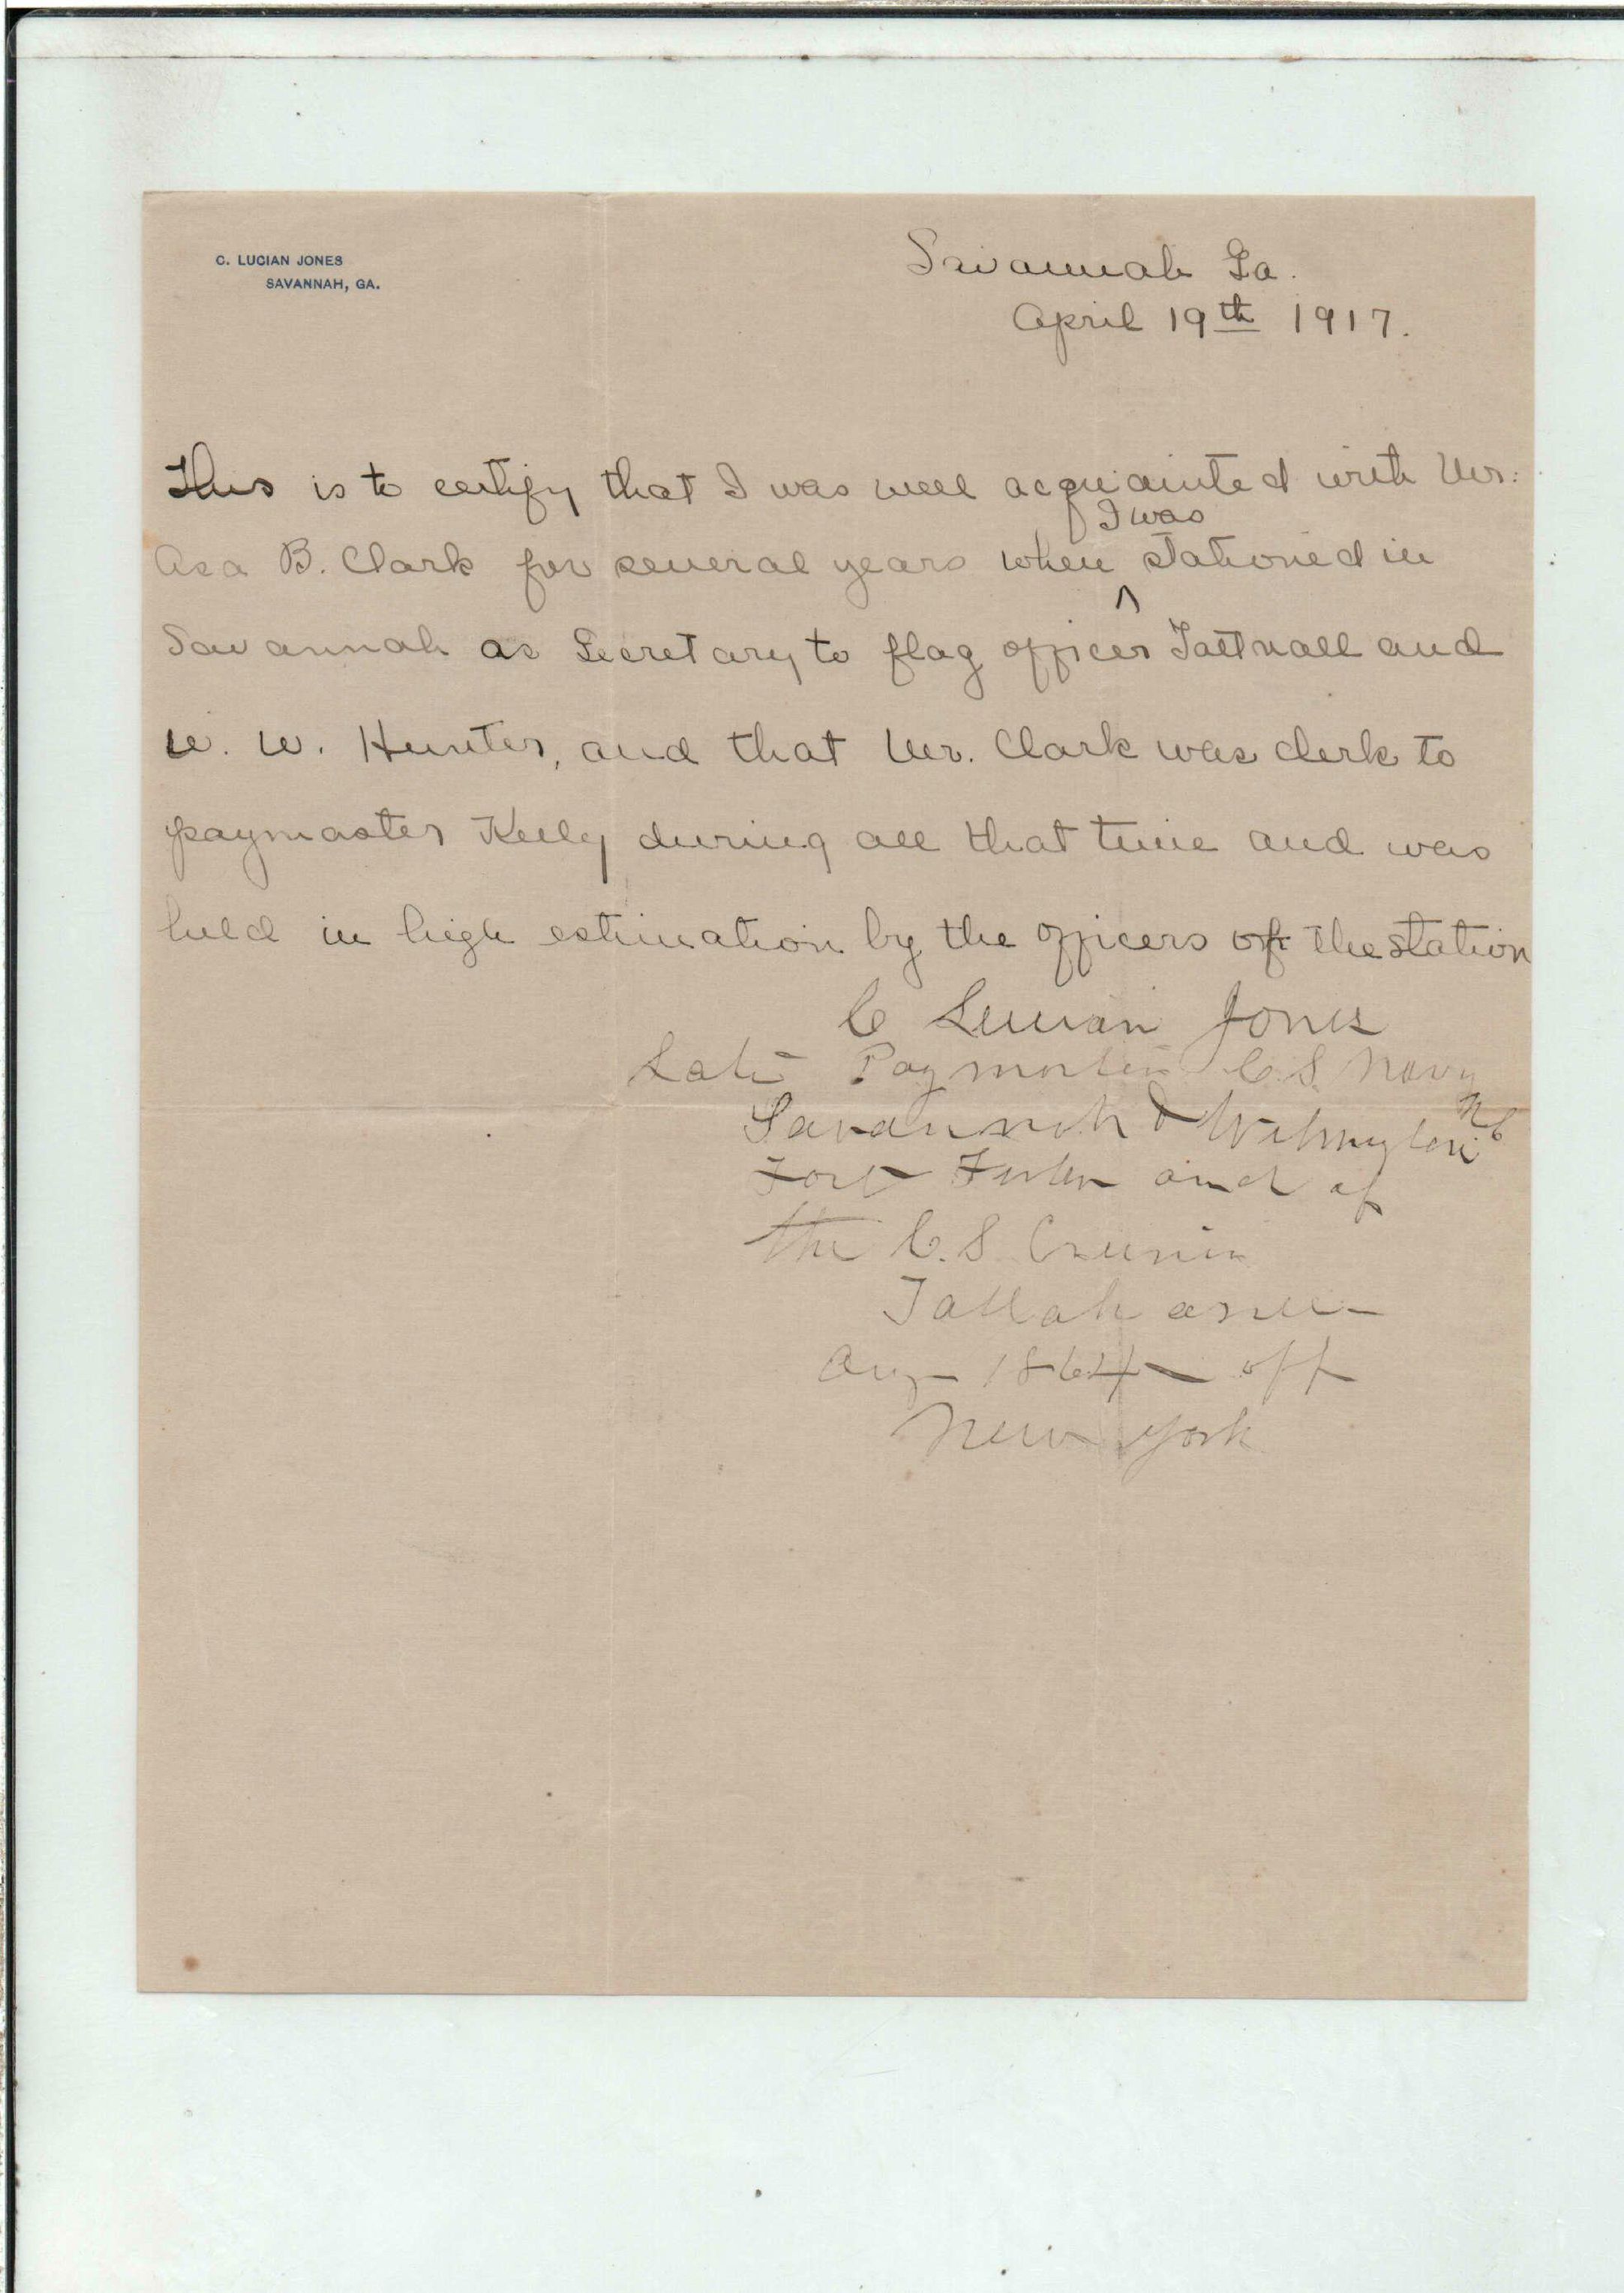 C. LUCIAN JONES
SAVANNAH, GA.
Savannah Ga.
April 19th 1917.
This is to certify that I was well acquainted with Mr:
Asa B. Clark for several years when ^ I was stationed in
Savannah as Secretary to flag officer Tattnall and
W. W. Hunter, and that Mr. Clark was clerk to
paymaster Kelly during all that time and was
held in high estimation by the officers of the station
C Lucian Jones
Late Paymaster C. S. Navy
Savannah & Wilmington N C
Fort Fisher and of
the C. S. Cruiser
Tallahassee
Aug 1864 off
New York